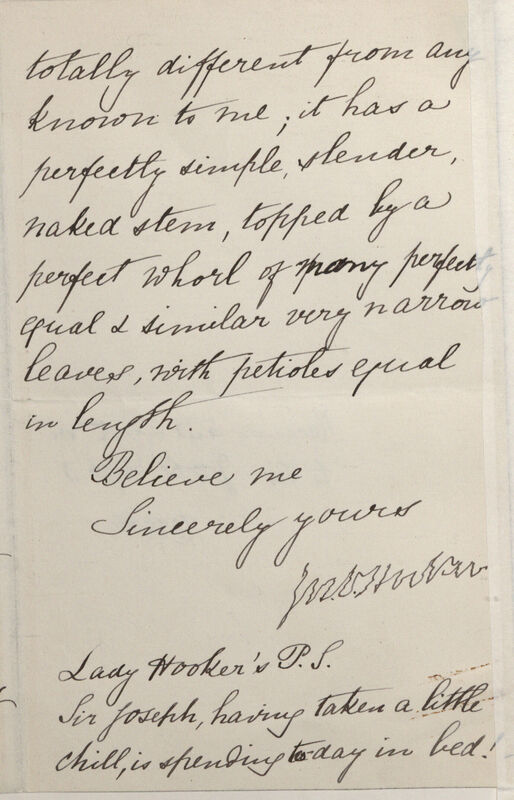 totally different from any
known to me; it has a
perfectly simple, slender,
naked stem, topped by a
perfect whorl of many perfectly
equal & similar very narrow
leaves, with petioles equal
in length.
Believe me
Sincerely yours
Jos. D. Hooker
Lady Hooker's P.S.
Sir Joseph, having taken a little
chill, is spending to day in bed!